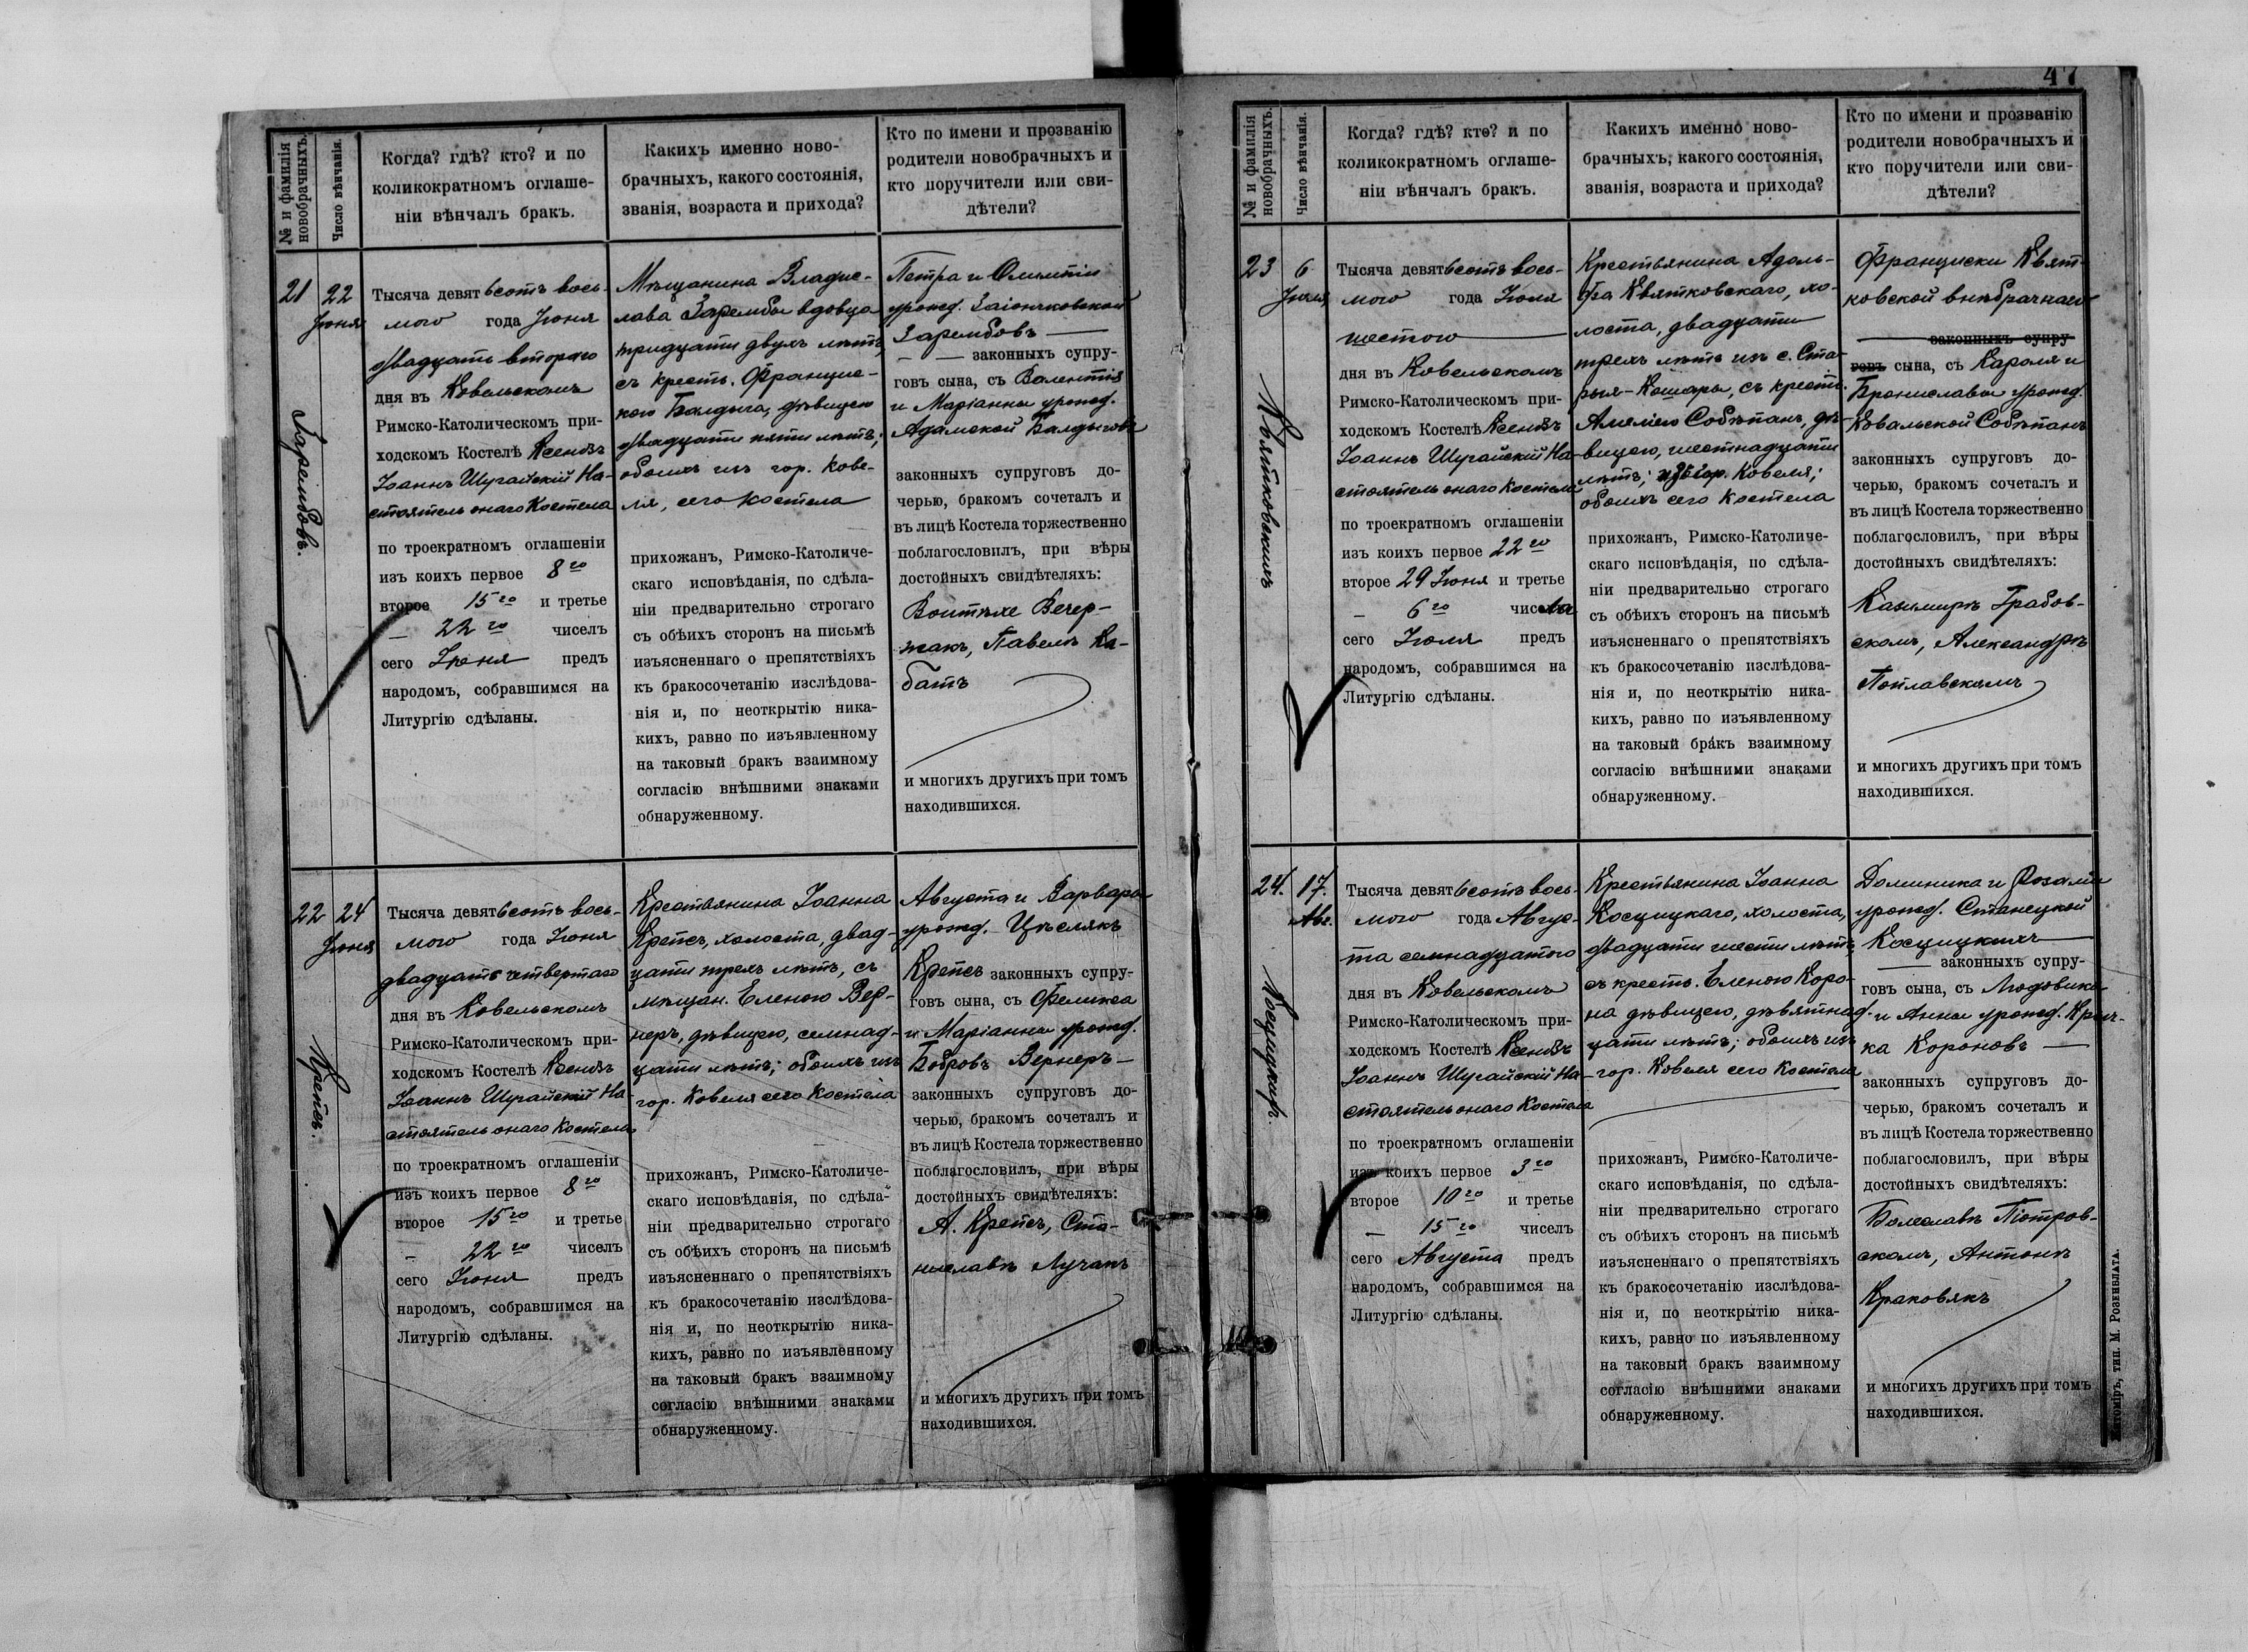 № и фамилія новобрачныхъ.
Число вѣнчанія.
Когда? гдѣ? кто? и по
коликократномъ оглаше-
ніи вѣнчалъ бракъ.
Какихъ именно ново-
брачныхъ, какого состоянія,
званія, возраста и прихода?
Кто по имени и прозванію
родители новобрачныхъ и
кто поручители или сви-
дѣтели?
21
Зарембовъ.
22
Іюня
Тысяча девятьсотъ вось-
мого года Іюня
двадцать второго
дня въ Ковельскомъ
Римско-Католическомъ при-
ходскомъ Костелѣ Ксендзъ
Іоаннъ Шугайскій На-
стоятель онаго Костела
по троекратномъ оглашеніи
изъ коихъ первое 8го
второе 15го и третье
— 22го чиселъ
сего Іюня предъ
народомъ, собравшимся на
Литургію сдѣланы.
Мѣщанина Владис-
лава Зарембы вдовца
тридцати двухъ лѣтъ,
съ крест. Францис-
кою Балдыга, дѣвицею
двадцати пяти лѣтъ;
обоихъ изъ гор. Кове-
ля, сего Костела
прихожанъ, Римско-Католиче-
скаго исповѣданія, по сдѣла-
ніи предварительно строгаго
съ обѣихъ сторонъ на письмѣ
изъясненнаго о препятствіяхъ
къ бракосочетанію изслѣдова-
нія и, по неоткрытію ника-
кихъ, равно по изъявленному
на таковый бракъ взаимному
согласію внѣшними знаками
обнаруженному.
Петра и Олимпіи
урожд. Заіончковской
Зарембовъ —
— — законныхъ супру-
говъ сына, съ Валентія
и Маріанны урожд.
Адамской Балдыговъ
законныхъ супруговъ до-
черью, бракомъ сочеталъ и
въ лицѣ Костела торжественно
поблагословилъ, при вѣры
достойныхъ свидѣтеляхъ:
Войтѣхе Вечер-
жакъ, Павелъ Ка-
батъ
и многихъ другихъ при томъ
находившихся.
22
Крепсъ.
24
Іюня
Тысяча девятьсотъ вось-
мого года Іюня
двадцать четвертаго
дня въ Ковельскомъ
Римско-Католическомъ при-
ходскомъ Костелѣ Ксендзъ
Іоаннъ Шугайскій На-
стоятель онаго Костела
по троекратномъ оглашеніи
изъ коихъ первое 8го
второе 15го и третье
— 22го чиселъ
сего Іюня предъ
народомъ, собравшимся на
Литургію сдѣланы.
Крестьянина Іоанна
Крепсъ, холоста, двад-
цати трехъ лѣтъ, съ
мѣщан. Еленою Вер-
неръ, дѣвицею, семнад-
цати лѣтъ; обоихъ изъ
гор. Ковеля сего Костела
прихожанъ, Римско-Католиче-
скаго исповѣданія, по сдѣла-
ніи предварительно строгаго
съ обѣихъ сторонъ на письмѣ
изъясненнаго о препятствіяхъ
къ бракосочетанію изслѣдова-
нія и, по неоткрытію ника-
кихъ, равно по изъявленному
на таковый бракъ взаимному
согласію внѣшними знаками
обнаруженному.
Августа и Варвары
урожд. Цѣслякъ
Крепсъ законныхъ супру-
говъ сына, съ Феликса
и Маріанны урожд.
Бобровъ Вернеръ —
законныхъ супруговъ до-
черью, бракомъ сочеталъ и
въ лицѣ Костела торжественно
поблагословилъ, при вѣры
достойныхъ свидѣтеляхъ:
А. Крепсъ, Ста-
ниславъ Лучакъ
и многихъ другихъ при томъ
находившихся.
47
№ и фамилія новобрачныхъ.
Число вѣнчанія.
Когда? гдѣ? кто? и по
коликократномъ оглаше-
ніи вѣнчалъ бракъ.
Какихъ именно ново-
брачныхъ, какого состоянія,
званія, возраста и прихода?
Кто по имени и прозванію
родители новобрачныхъ и
кто поручители или сви-
дѣтели?
23
Квятковскихъ
6
Іюля
Тысяча девятьсотъ вось-
мого года Іюля
шестого —
дня въ Ковельскомъ
Римско-Католическомъ при-
ходскомъ Костелѣ Ксендзъ
Іоаннъ Шугайскій На-
стоятель онаго Костела
по троекратномъ оглашеніи
изъ коихъ первое 22го
второе 29 Іюня и третье
— 6го числа
сего Іюля предъ
народомъ, собравшимся на
Литургію сдѣланы.
Крестьянина Адоль-
фа Квятковскаго, хо-
лоста, двадцати
трехъ лѣтъ изъ с. Ста-
рыя-Кошары, съ крест.
Амеліею Собѣпанъ, дѣ-
вицею, шестнадцати
лѣтъ; изъ гор. Ковеля;
обоихъ сего Костела
прихожанъ, Римско-Католиче-
скаго исповѣданія, по сдѣла-
ніи предварительно строгаго
съ обѣихъ сторонъ на письмѣ
изъясненнаго о препятствіяхъ
къ бракосочетанію изслѣдова-
нія и, по неоткрытію ника-
кихъ, равно по изъявленному
на таковый бракъ взаимному
согласію внѣшними знаками
обнаруженному.
Франциски Квят-
ковской внѣбрачнаго
— законныхъ супру-
говъ сына, съ Кароля и
Брониславы урожд.
Ковальской Собѣпанъ
законныхъ супруговъ до-
черью, бракомъ сочеталъ и
въ лицѣ Костела торжественно
поблагословилъ, при вѣры
достойныхъ свидѣтеляхъ:
Казимиръ Грабов-
скомъ, Александръ
Поплавскомъ
и многихъ другихъ при томъ
находившихся.
24.
Косцицкихъ.
17.
Авг.
Тысяча девятьсотъ вось-
мого года Авгус-
та семнадцатого
дня въ Ковельскомъ
Римско-Католическомъ при-
ходскомъ Костелѣ Ксендзъ
Іоаннъ Шугайскій На-
стоятель онаго Костела
по троекратномъ оглашеніи
изъ коихъ первое 3го
второе 10го и третье
— 15го чиселъ
сего Августа предъ
народомъ, собравшимся на
Литургію сдѣланы.
Крестьянина Іоанна
Косцицкаго, холоста,
двадцати шести лѣтъ,
съ крест. Еленою Коро-
на дѣвицею, дѣвятнад-
цати лѣтъ; обоихъ изъ
гор. Ковеля сего Костела
прихожанъ, Римско-Католиче-
скаго исповѣданія, по сдѣла-
ніи предварительно строгаго
съ обѣихъ сторонъ на письмѣ
изъясненнаго о препятствіяхъ
къ бракосочетанію изслѣдова-
нія и, по неоткрытію ника-
кихъ, равно по изъявленному
на таковый бракъ взаимному
согласію внѣшними знаками
обнаруженному.
Доминика и Розаліи
урожд. Станецкой
Косцицкихъ —
— законныхъ супру-
говъ сына, съ Людовика
и Анны урожд.
ка Короновъ —
законныхъ супруговъ до-
черью, бракомъ сочеталъ и
въ лицѣ Костела торжественно
поблагословилъ, при вѣры
достойныхъ свидѣтеляхъ:
Болеславъ Піотров-
скомъ, Антонъ
Краковякъ
и многихъ другихъ при томъ
находившихся.
Житоміръ, тип. М. Розенблата.